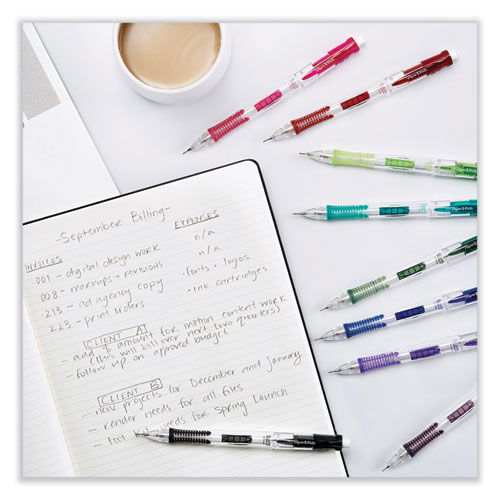 -September Billing-
INVOICES
EXPENSES
001 - digital design work
n/a
008 - markups + revisions
n/a
213 - ad agency copy
· fonts + logos
223 - print orders
· ink cartridges
CLIENT A
- add $ amount for motion content work
(this will billover next two quarters)
- follow up on approved budget
CLIENT B
- new projects for December and January
- render needs for all files
- tool for Spring Launch
Paper Mate
Paper Mate
Paper Mate
Paper Mate